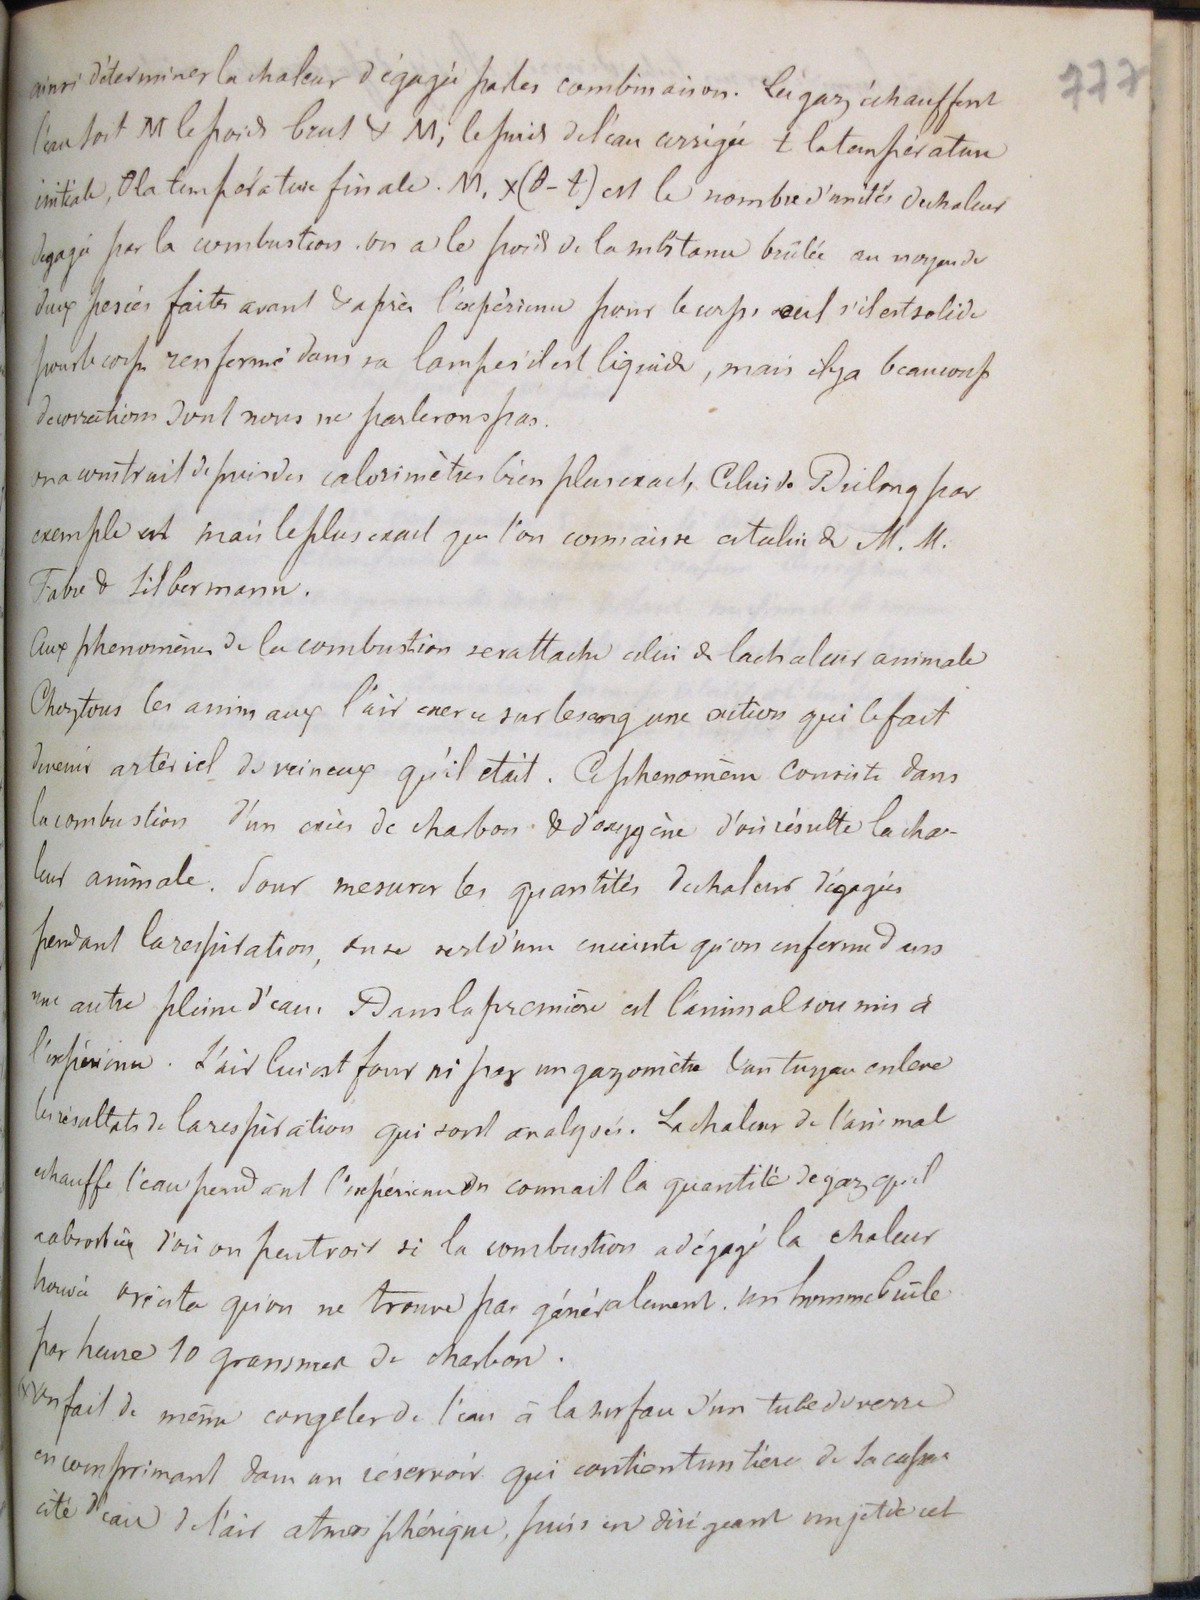 777
ainsi déterminer la chaleur dégagée par les combinaison. Les gaz échauffent
l'eau soit M le poids brut & M, le poids de l'eau corrigée t la température
initiale, θ la température finale. M, x(θ-t) est le nombre d'unités de chaleur
dégagée par la combustion. on a le poids de la substance brûlée au moyen de
deux pesées faites avant & après l'expérience pour le corps seul s'il est solide
pour le corps renfermé dans sa lampe s'il est liquide, mais il y a beaucoup
de corrections dont nous ne parlerons pas.
on a construit depuis des calorimètres bien plus exact, Celui de Dulong par
exemple est mais le plus exact que l'on connaisse est celui de M. M.
Fabre & Silbermann.
Aux phenomènes de la combustion se rattache celui de la chaleur animale
Chez tous les animaux l'air exerce sur le sang une action qui le fait
devenir artériel de veineux qu'il etait. Ce phenomène consiste dans
la combustion d'un excès de charbon & d'oxygène d'où résulte la cha-
leur animale. Pour mesurer les quantités de chaleur dégagées
pendant la respiration, on se sert d'une enceinte qu'on enferme dans
une autre pleine d'eau. Dans la première est l'animal soumis à
l'expérience. L'air lui est fourni par un gazomètre & un tuyau enlève
les résultats de la respiration qui sont analysés. La chaleur de l'animal
echauffe l'eau pendant l'expérience On connait la quantité de gaz qu'il
a absorbée d'où on peut voir si la combustion a dégagé la chaleur
trouvée qu'on ne trouve pas généralement. un homme brûle
par heure 10 grammes de charbon.
(x) on fait de même congeler de l'eau à la surface d'un tube de verre
en comprimant dans un réservoir qui contient un tiers de sa capa
cité d'eau de l'air atmosphérique, puis en dirigeant un jet de cet